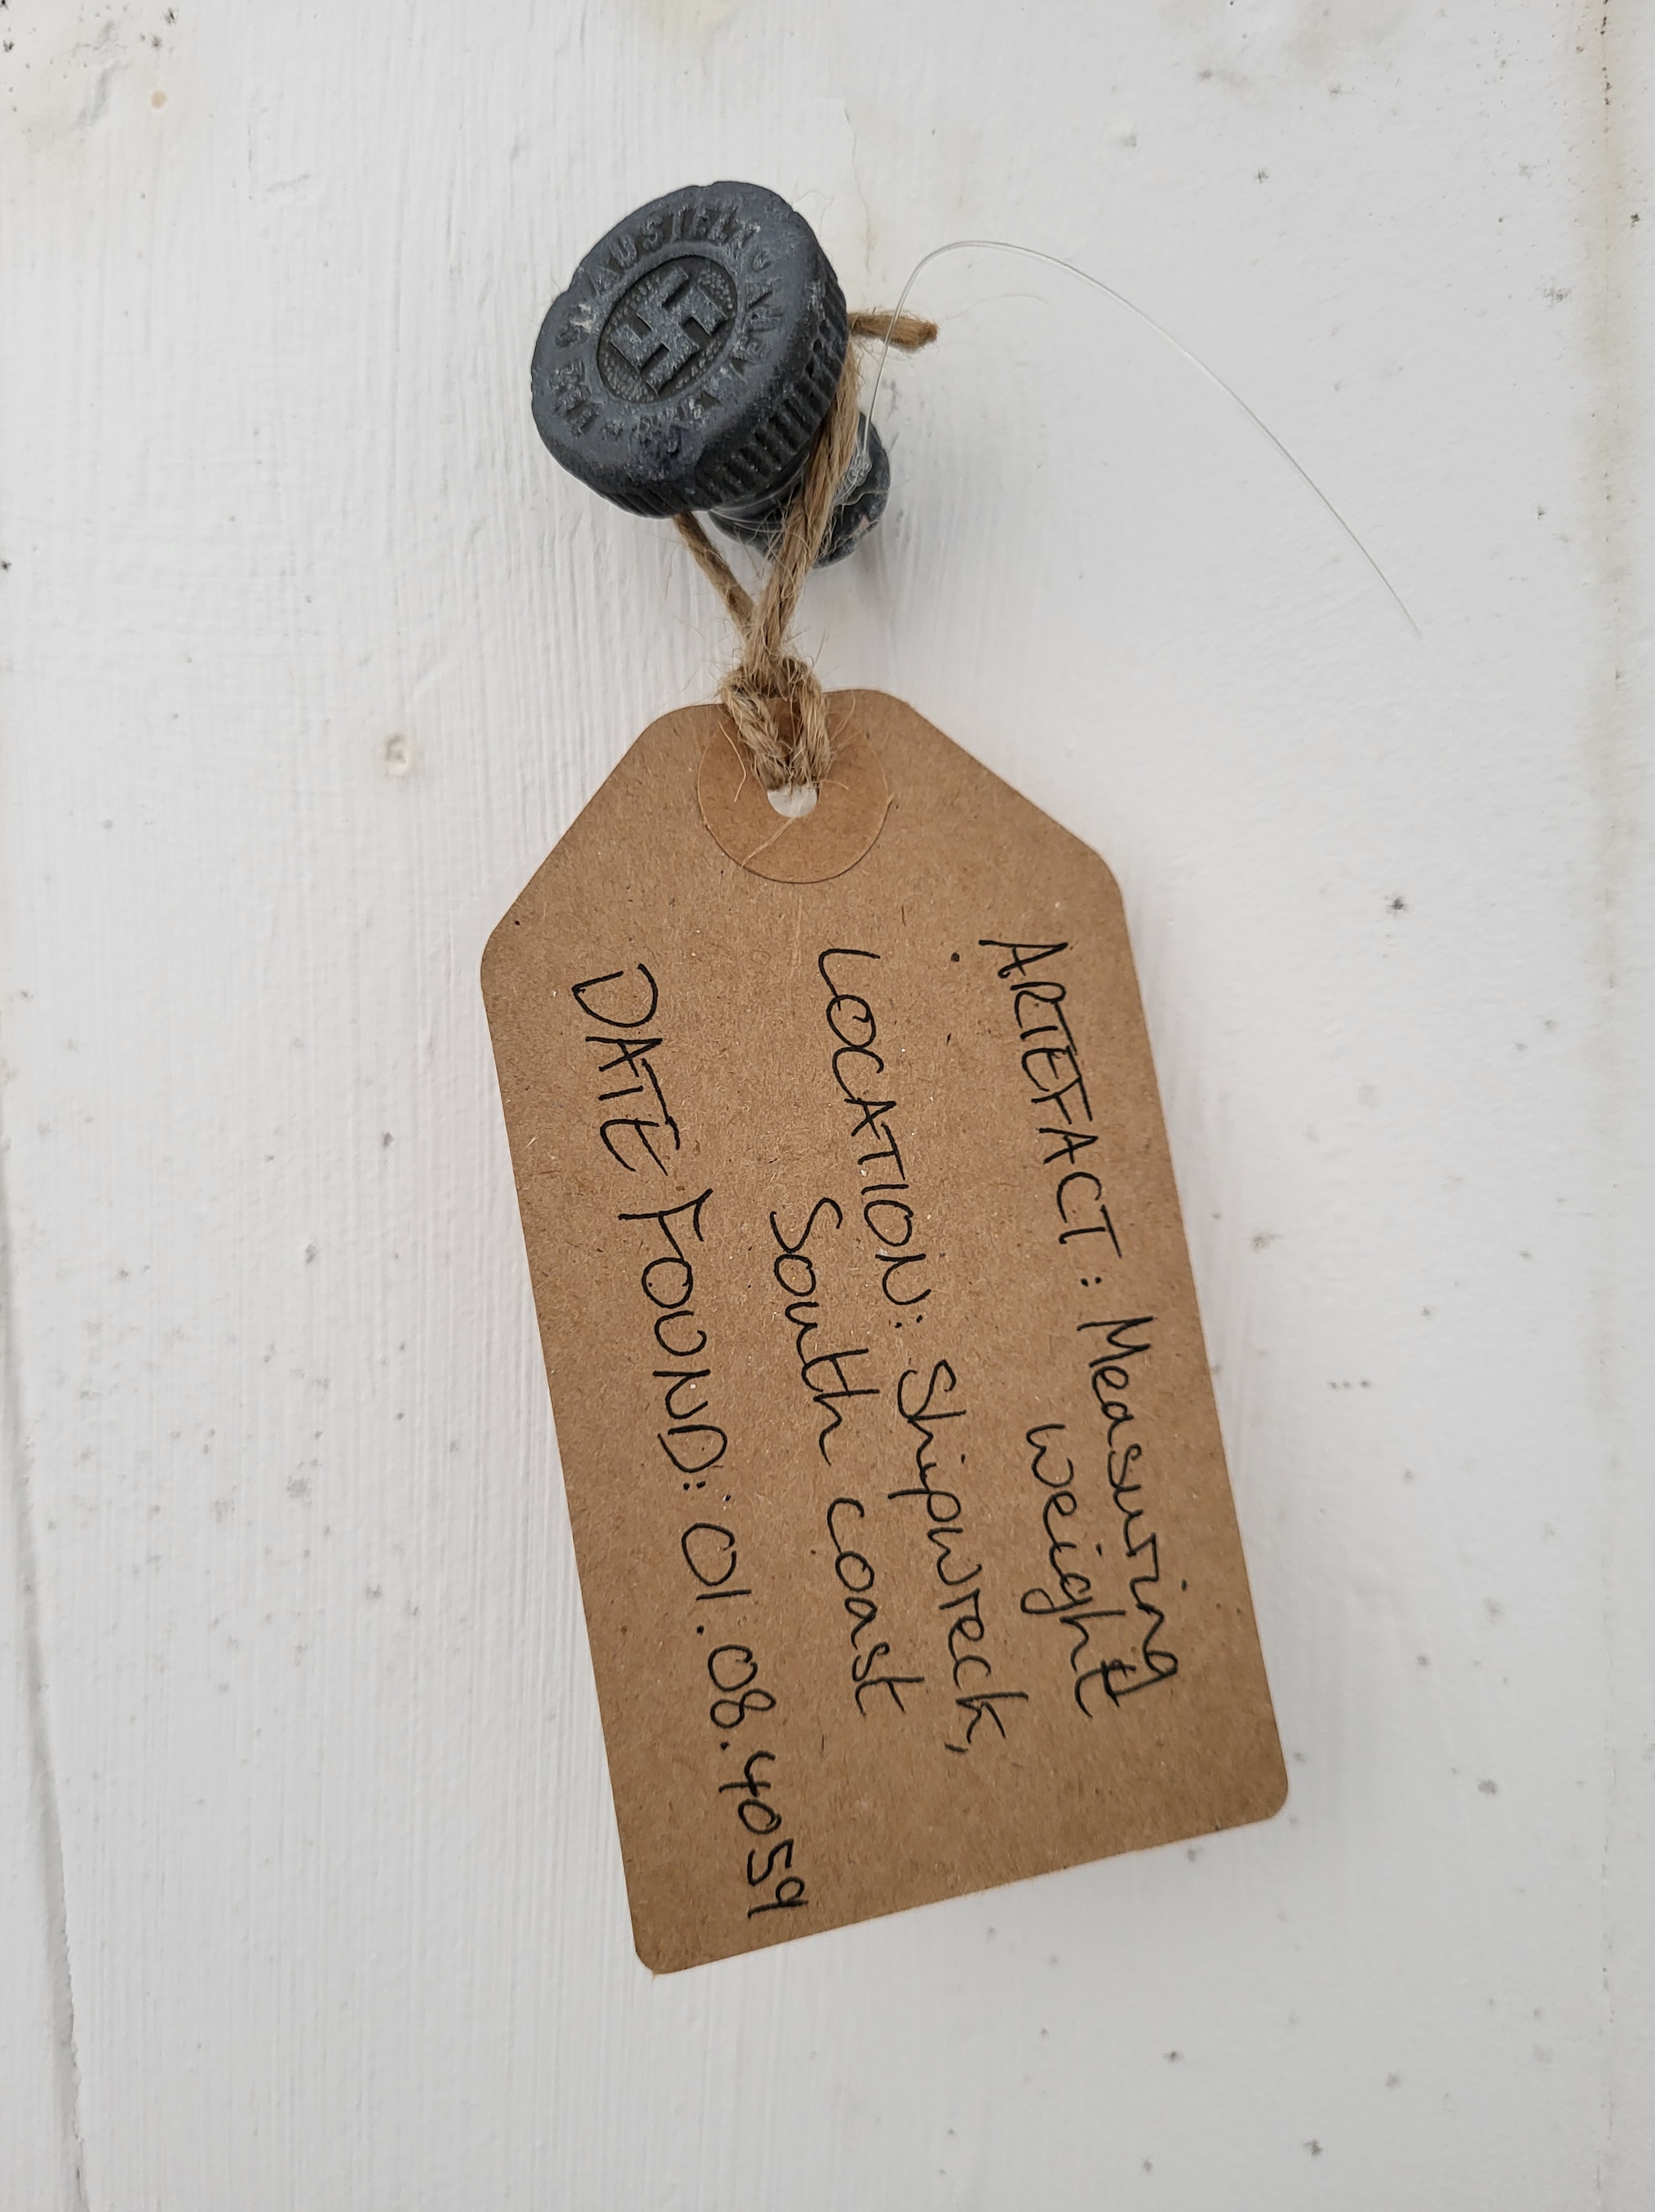 THE ST AUSTELL BREWERY Co LTD
ARTEFACT: Measuring
weight
LOCATION: Shipwreck,
South coast
DATE FOUND: 01.08.4059